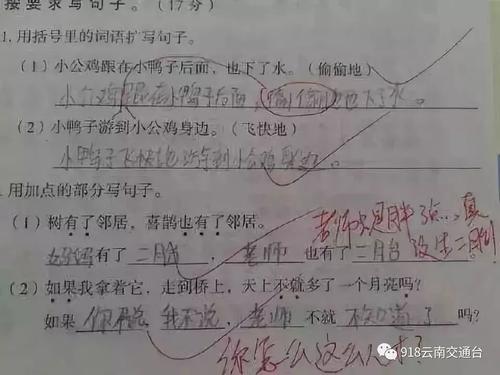 按要求写句子。(17分)
1. 用括号里的词语扩写句子。
(1) 小公鸡跟在小鸭子后面,也下了水。(偷偷地)
小公鸡跟在小鸭子后面,偷偷地也下了水。
(2) 小鸭子游到小公鸡身边。(飞快地)
小鸭子飞快地游到小公鸡身边。
用加点的部分写句子。
(1) 树有了邻居,喜鹊也有了邻居。
老师只是胖了点...真
妈妈有了二月台,老师也有了二月台
没生二月台!
(2) 如果我拿着它,走到桥上,天上不就多了一个月亮吗?
如果你不说我不说,老师不就不知道了吗?
你怎么这么有才?
918云南交通台